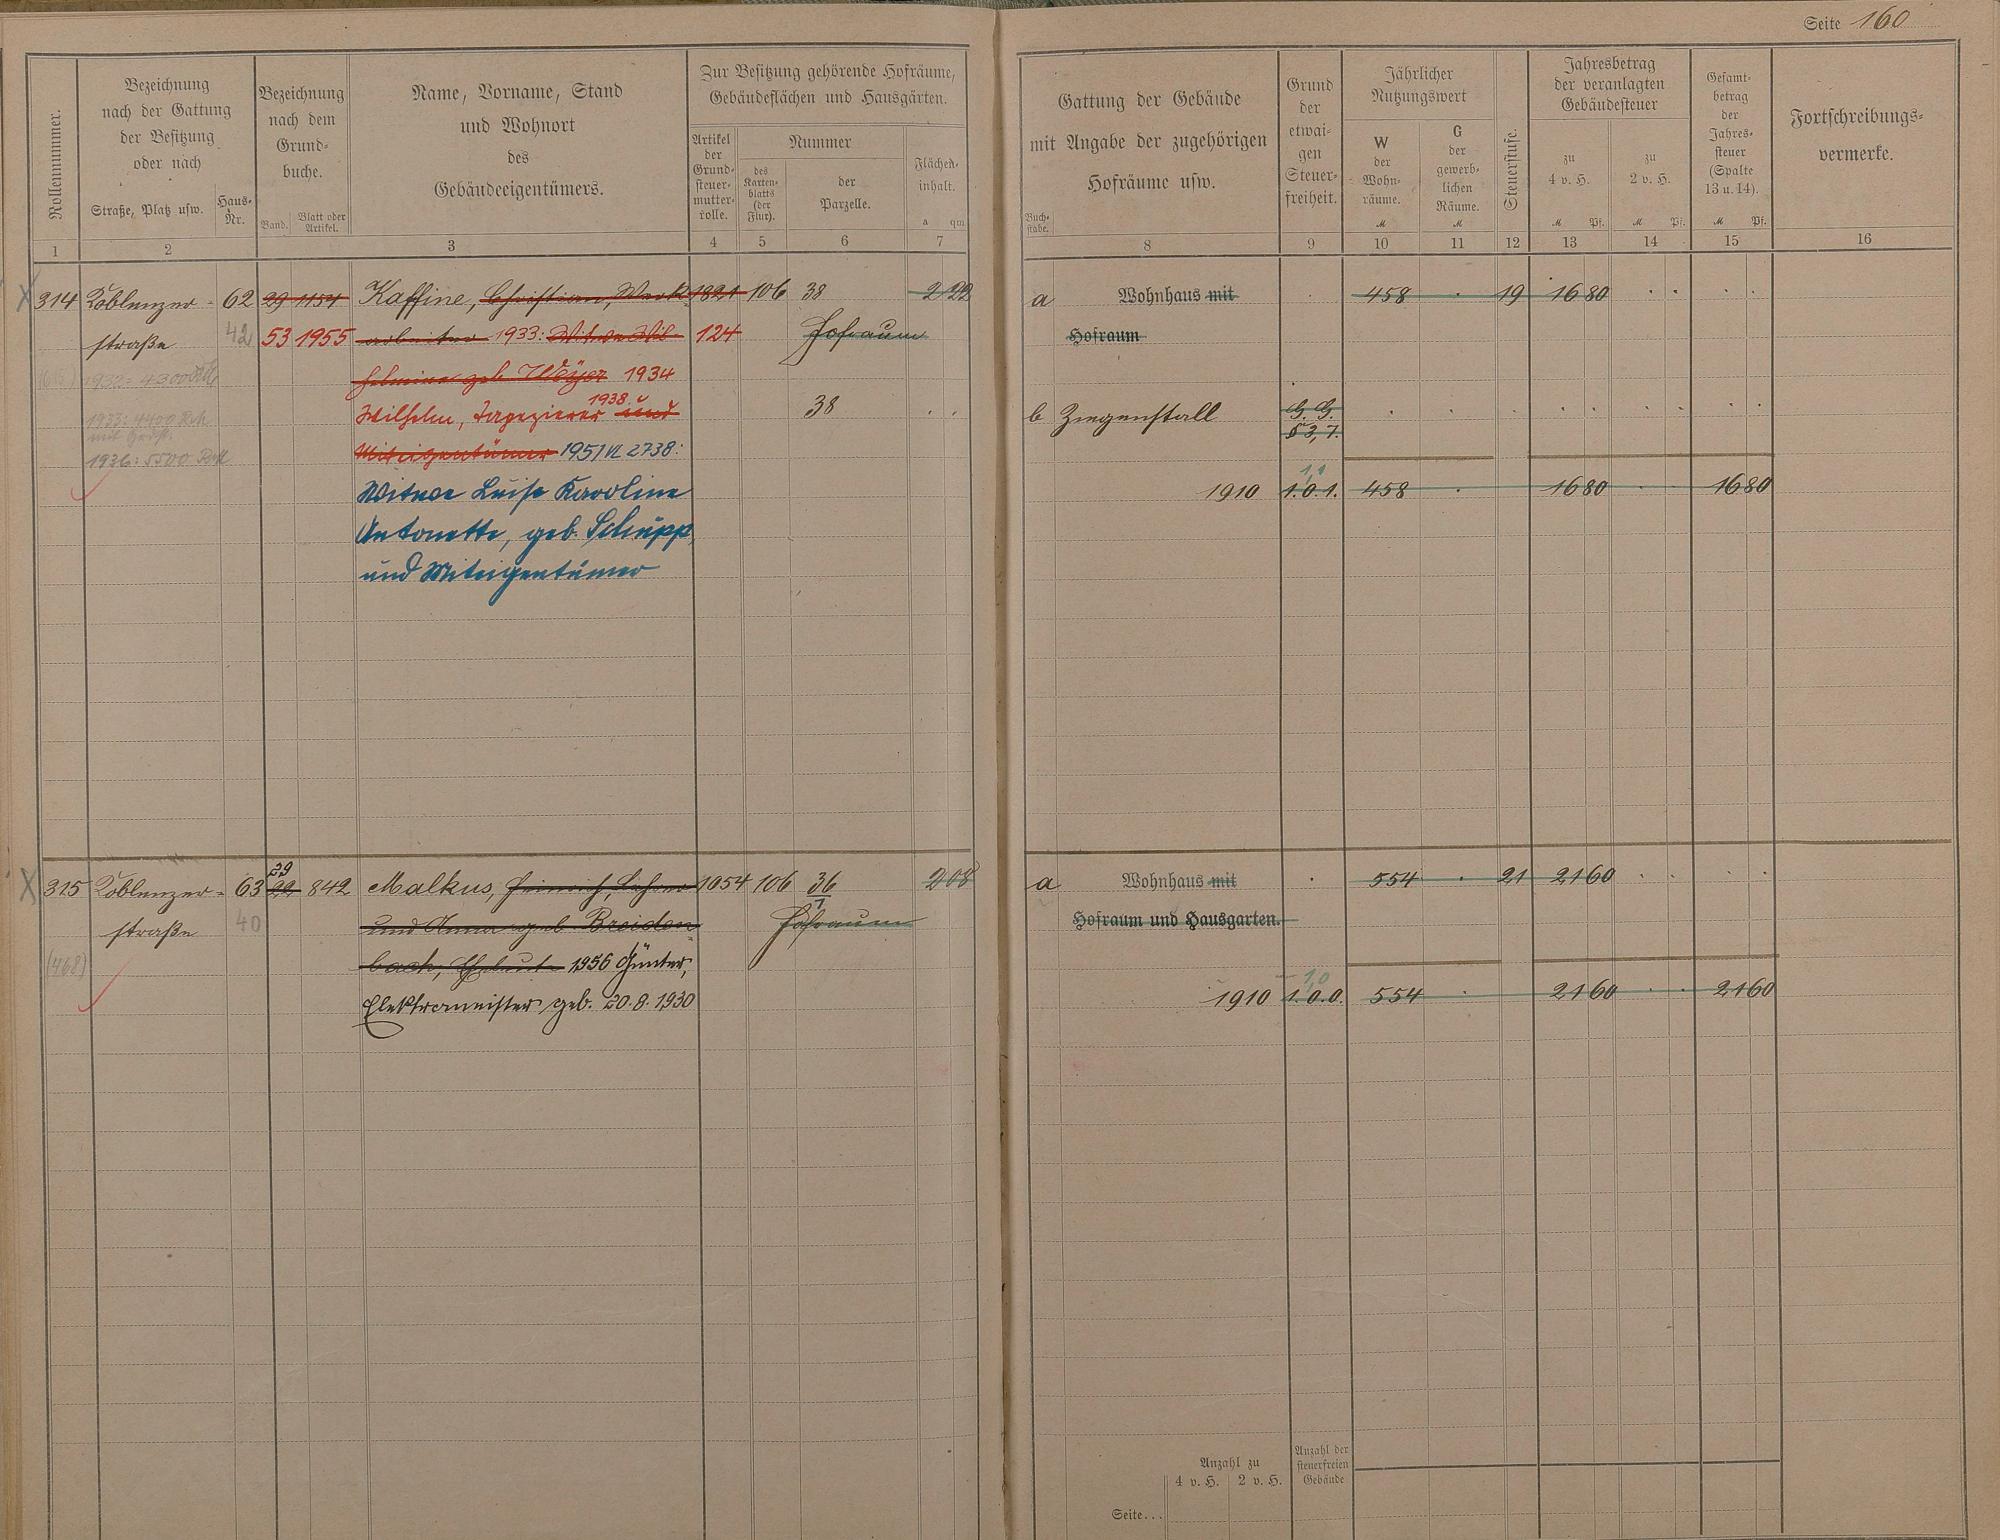 Seite 160
Rollennummer.
Bezeichnung
nach der Gattung
der Besitzung
oder nach
Straße, Platz usw.
Haus-
Nr.
Bezeichnung
nach dem
Grund-
buche.
Band.
Blatt oder
Artikel.
Name, Vorname, Stand
und Wohnort
des
Gebäudeeigentümers.
Zur Besitzung gehörende Hofräume,
Gebäudeflächen und Hausgärten.
Artikel
der
Grund-
steuer-
mutter-
rolle.
Nummer
des
Karten-
blatts
(der
Flur).
der
Parzelle.
Flächen-
inhalt.
a qm
Buch-
stabe.
Gattung der Gebäude
mit Angabe der zugehörigen
Hofräume usw.
Grund
der
etwai-
gen
Steuer-
freiheit.
Jährlicher
Nutzungswert
W
der
Wohn-
räume.
M
G
der
gewerb-
lichen
Räume.
M
Steuerstufe.
Jahresbetrag
der veranlagten
Gebäudesteuer
zu
4 v. H.
M Pf.
zu
2 v. H.
M Pf.
Gesamt-
betrag
der
Jahres-
steuer
(Spalte
13 u. 14).
M Pf.
Fortschreibungs-
vermerke.
1 2 3 4 5 6 7 8 9 10 11 12 13 14 15 16
X 314 Koblenzer- 62 29 1154 Kaffine, Christian, Werk- 1821 106 38 2 22 a Wohnhaus mit 458 19 16 80
straße 42 53 1955 arbeiter 1933: Witwe Wil- 124 Hofraum Hofraum
1932: 4300 RM helmine geb. Weyer 1934
1933: 4400 RM Wilhelm, Tapezierer 1938 und 38 b Ziegenstall G. G.
§ 3, 7.
1936: 5500 RM Miteigentümer 1951 VI 2738:
1,1
Witwe Luise Karoline 1910 1.0.1. 458 16 80 16 80
Antonette, geb. Schupp,
und Miteigentümer
29
X 315 Koblenzer- 63 22 842 Malkus, Heinrich, Lehrer 1054 106 36 2 08 a Wohnhaus mit 554 21 21 60
1
straße 40 und Anna geb. Breiden- Hofraum Hofraum und Hausgarten.
(468) bach, Eheleute 1956 Günter,
1,0
Elektromeister geb. 20.8.1930 1910 1.0.0. 554 21 60 21 60
Anzahl zu
4 v. H. 2 v. H.
Anzahl der
steuerfreien
Gebäude
Seite...